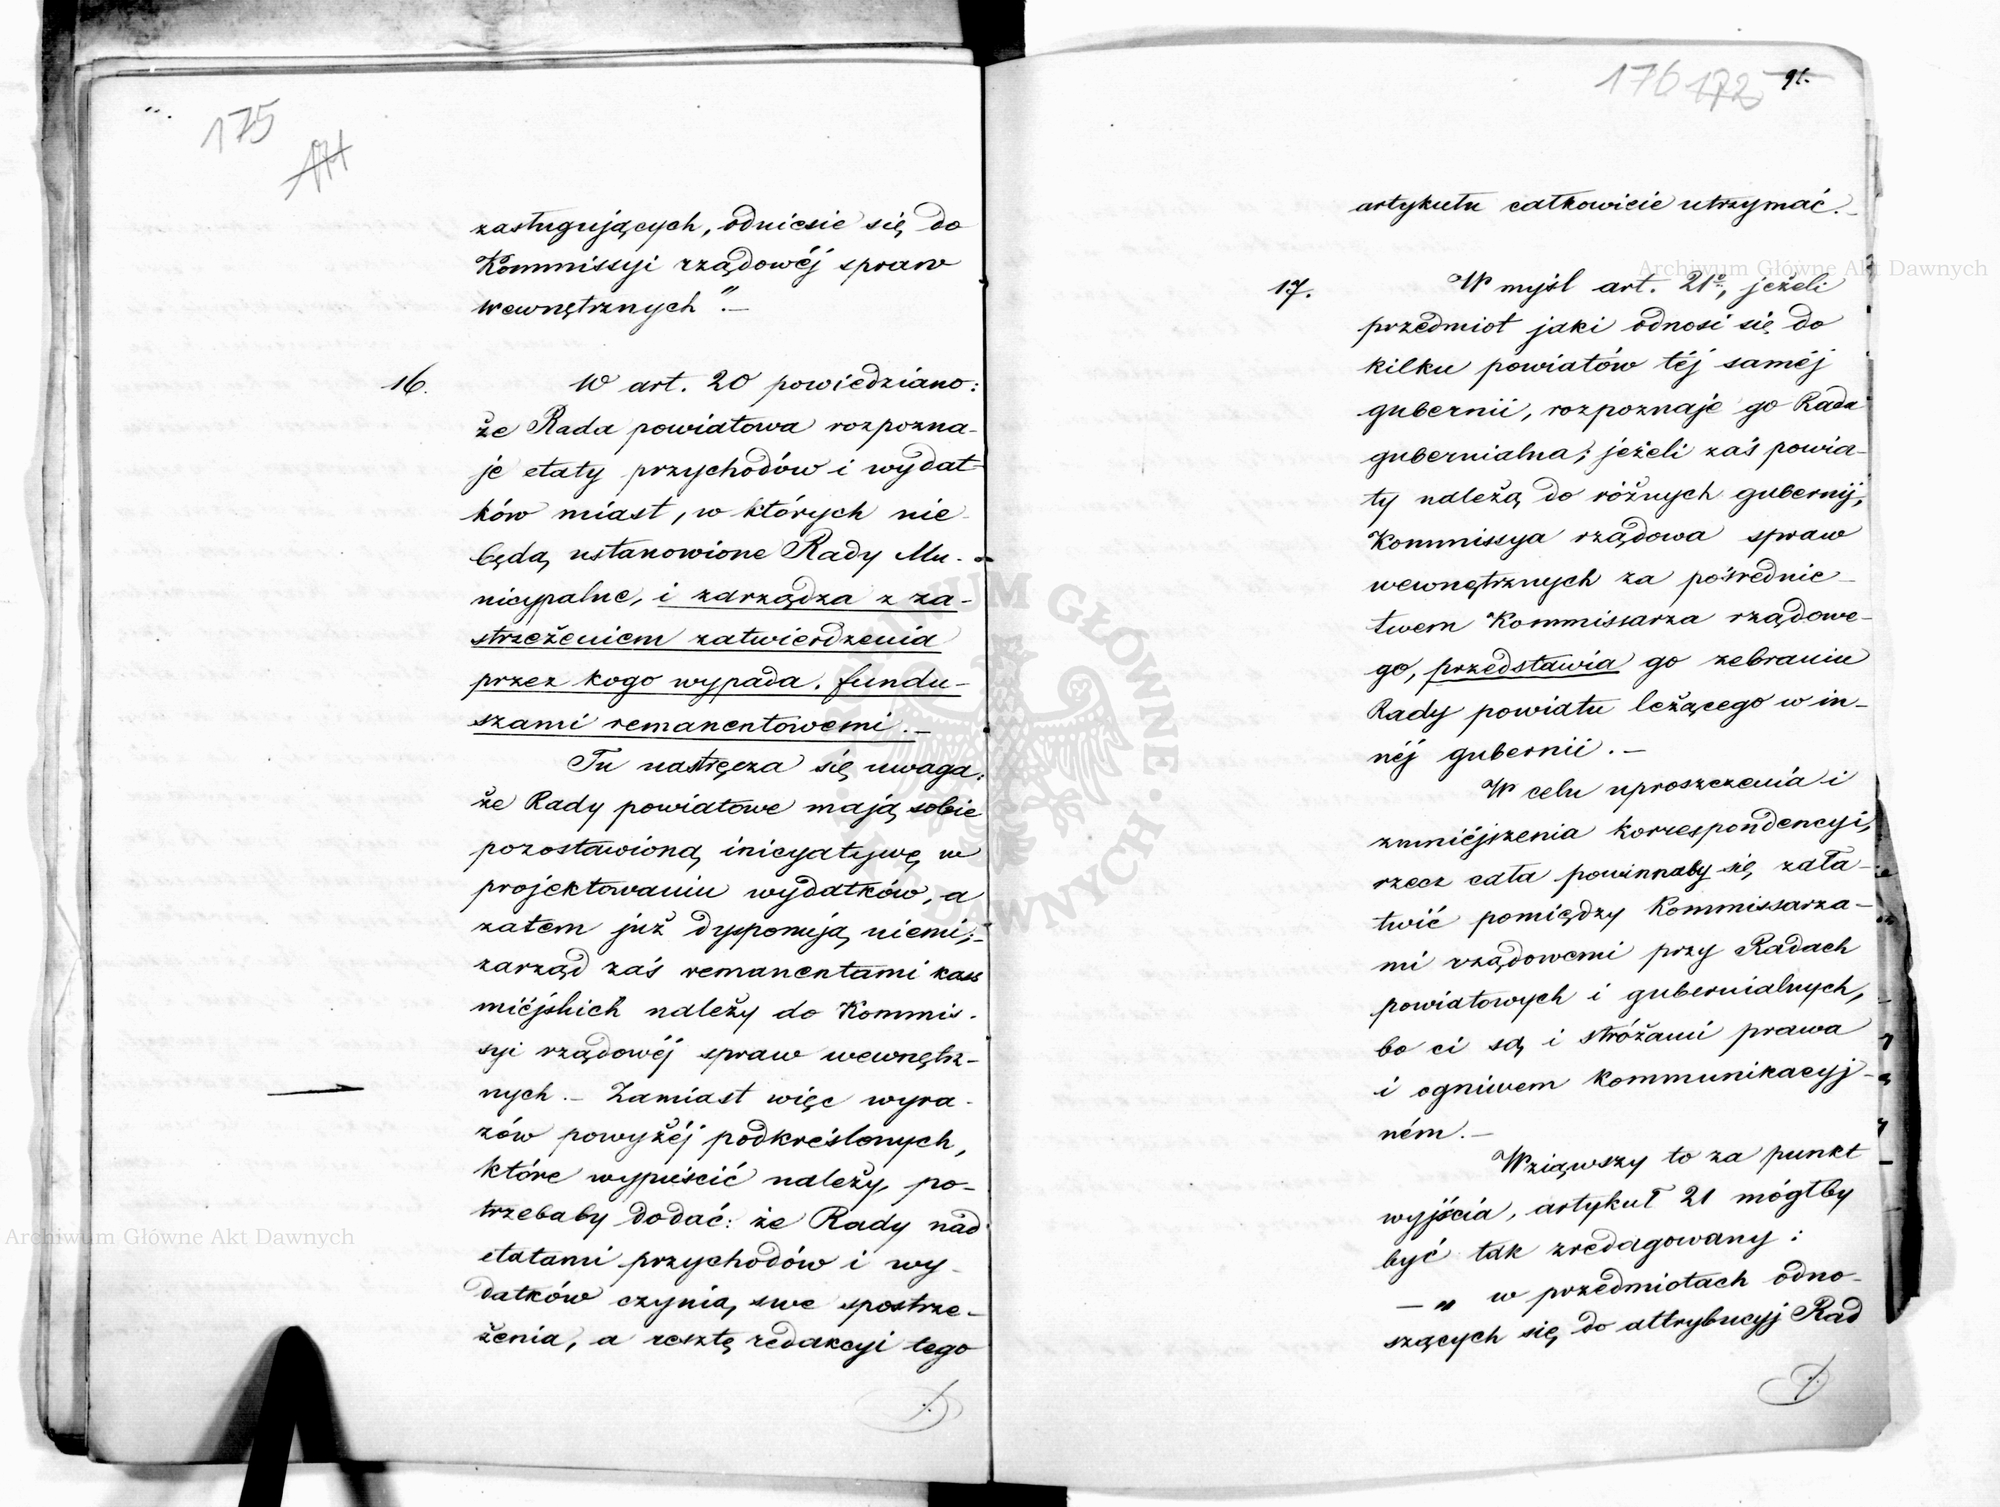 175
171
zasługujących, odniesie się do
Kommissyi rządowéj spraw
wewnętrznych”.—
16. W art. 20 powiedziano:
że Rada powiatowa rozpozna-
je etaty przychodów i wydat-
ków miast, w których nie
będą ustanowione Rady Mu-
nicypalne, i zarządza z za-
strzeżeniem zatwierdzenia
przez kogo wypada, fundu-
szami remanentowemi.—
Tu nastręcza się uwaga:
że Rady powiatowe mają sobie
pozostawioną inicyatywę w
projektowaniu wydatków, a
zatem już dysponują niemi;—
zarząd zaś remanentami kass
miéjskich należy do Kommis-
syi rządowéj spraw wewnętrz-
nych.— Zamiast więc wyra-
zów powyżéj podkreślonych,
które wypuścić należy, po-
trzebaby dodać: że Rady nad
etatami przychodów i wy-
datków czynią swe spostrze-
żenia, a resztę redakcyi tego
176 172 91.
artykułu całkowicie utrzymać.—
17. W myśl art. 21º, jeżeli
przedmiot jaki odnosi się do
kilku powiatów téj saméj
gubernii, rozpoznaje go Rada
gubernialna; jeżeli zaś powia-
ty należą do różnych gubernij,
Kommissya rządowa spraw
wewnętrznych za pośrednic-
twem Kommissarza rządowe-
go, przedstawia go zebraniu
Rady powiatu leżącego w in-
néj gubernii.—
W celu uproszczenia i
zmniéjszenia korrespondencyi,
rzecz cała powinnaby się zała-
twić pomiędzy Kommissarza-
mi rządowemi przy Radach
powiatowych i gubernialnych,
bo ci są i stróżami prawa
i ogniwem kommunikacyj-
ném.—
Wziąwszy to za punkt
wyjścia, artykuł 21 mógłby
być tak zredagowany:
— „ w przedmiotach odno-
szących się do attrybucyj Rad
Archiwum Główne Akt Dawnych
Archiwum Główne Akt Dawnych
ARCHIWUM GŁÓWNE AKT DAWNYCH